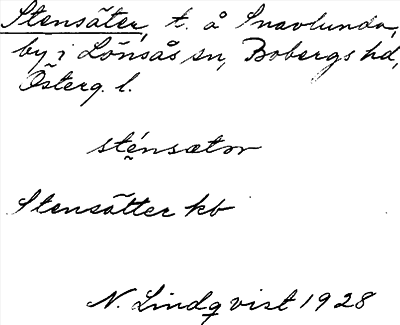 Stensäter, t. å Snavlunda,
by i Lönsås sn, Bobergs hd,
Österg. l.
sténsætər
Stensätter kb
N. Lindqvist 1928